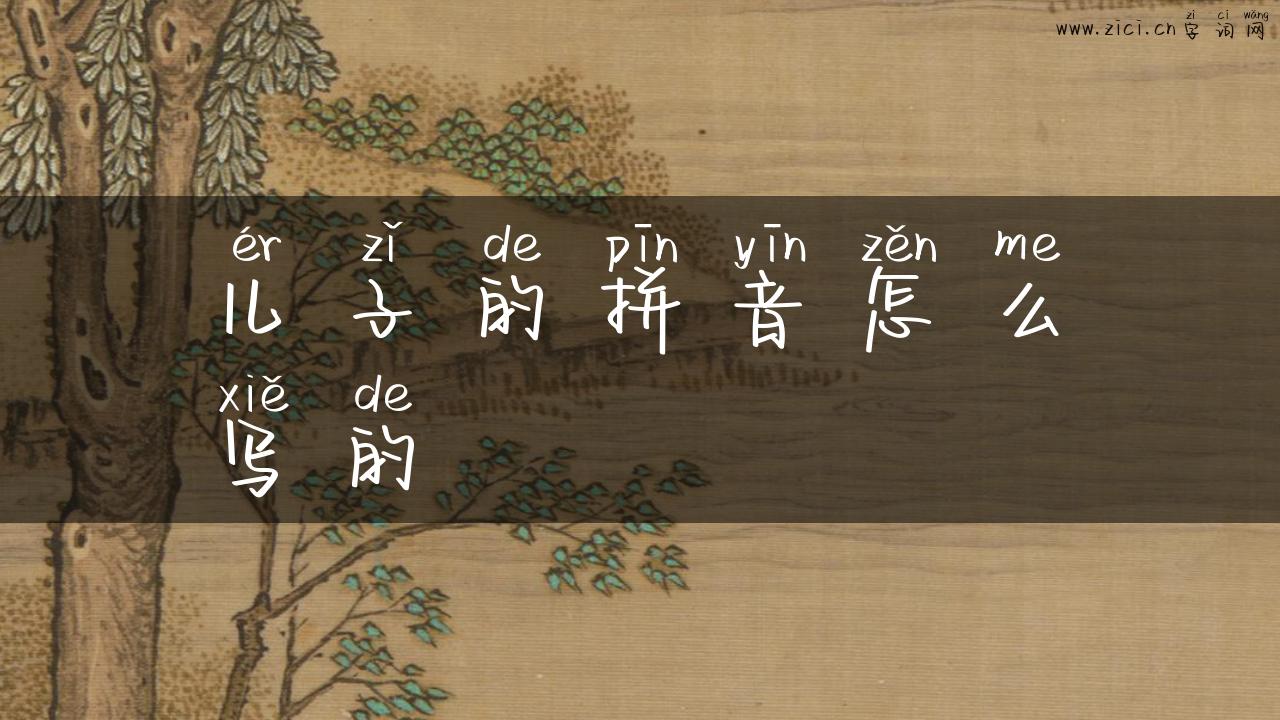 zì cí wǎng
www.zici.cn 字 词 网
ér zǐ de pīn yīn zěn me
儿 子 的 拼 音 怎 么
xiě de
写 的